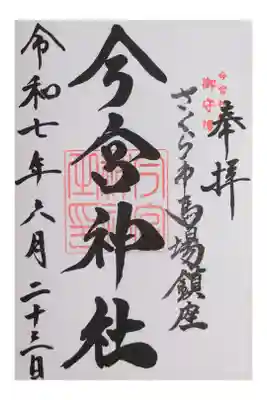 奉拝
さくら市馬場鎮座
今宮神社
令和七年六月二十三日